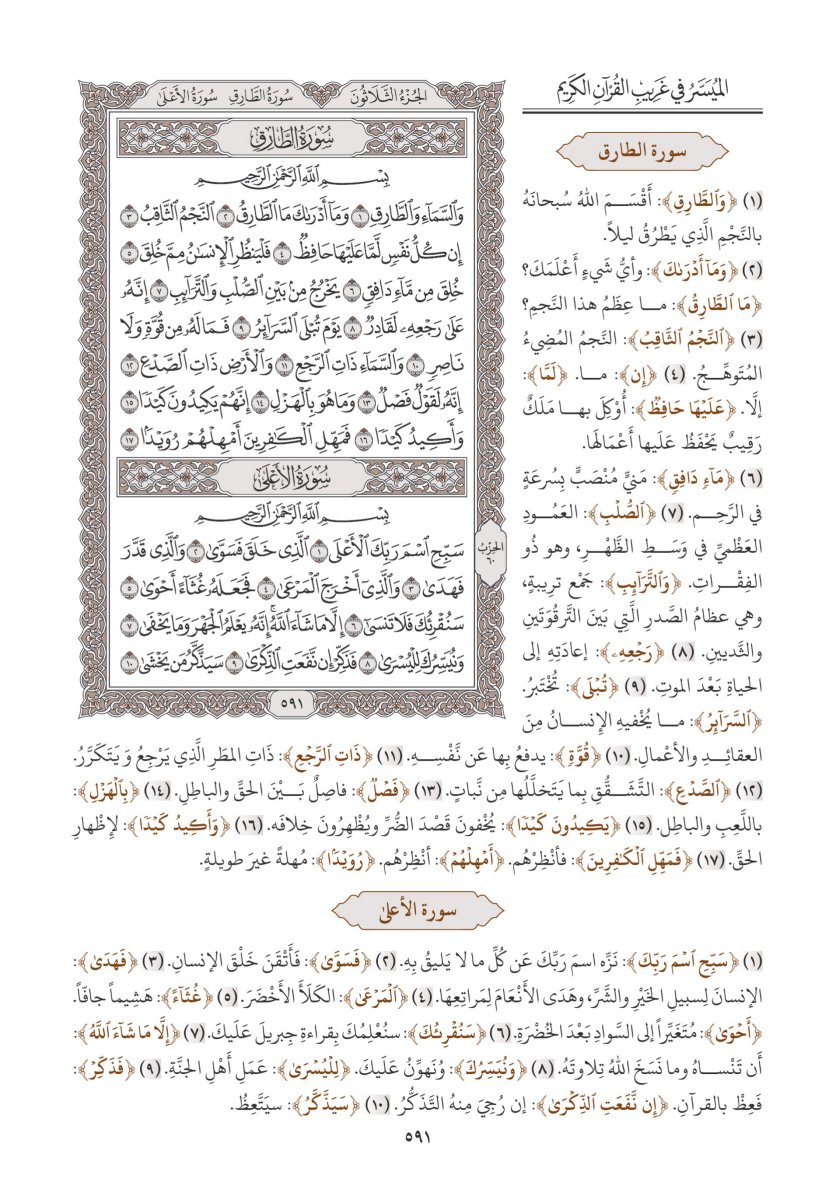 الميسر في غريب القرآن الكريم
الجزء الثلاثون سورة الطارق سورة الأعلى
سُورَةُ الطَّارِقِ
بِسْمِ اللَّهِ الرَّحْمَٰنِ الرَّحِيمِ
وَالسَّمَاءِ وَالطَّارِقِ ١ وَمَا أَدْرَىٰكَ مَا الطَّارِقُ ٢ النَّجْمُ الثَّاقِبُ ٣
إِن كُلُّ نَفْسٍ لَّمَّا عَلَيْهَا حَافِظٌ ٤ فَلْيَنظُرِ الْإِنسَٰنُ مِمَّ خُلِقَ ٥
خُلِقَ مِن مَّاءٍ دَافِقٍ ٦ يَخْرُجُ مِنۢ بَيْنِ الصُّلْبِ وَالتَّرَائِبِ ٧ إِنَّهُۥ
عَلَىٰ رَجْعِهِۦ لَقَادِرٌ ٨ يَوْمَ تُبْلَى السَّرَائِرُ ٩ فَمَا لَهُۥ مِن قُوَّةٍ وَلَا
نَاصِرٍ ١٠ وَالسَّمَاءِ ذَاتِ الرَّجْعِ ١١ وَالْأَرْضِ ذَاتِ الصَّدْعِ ١٢
إِنَّهُۥ لَقَوْلٌ فَصْلٌ ١٣ وَمَا هُوَ بِالْهَزْلِ ١٤ إِنَّهُمْ يَكِيدُونَ كَيْدًا ١٥
وَأَكِيدُ كَيْدًا ١٦ فَمَهِّلِ الْكَٰفِرِينَ أَمْهِلْهُمْ رُوَيْدًۢا ١٧
سُورَةُ الأَعْلَىٰ
بِسْمِ اللَّهِ الرَّحْمَٰنِ الرَّحِيمِ
سَبِّحِ اسْمَ رَبِّكَ الْأَعْلَى ١ الَّذِي خَلَقَ فَسَوَّىٰ ٢ وَالَّذِي قَدَّرَ
فَهَدَىٰ ٣ وَالَّذِي أَخْرَجَ الْمَرْعَىٰ ٤ فَجَعَلَهُۥ غُثَاءً أَحْوَىٰ ٥
سَنُقْرِئُكَ فَلَا تَنسَىٰ ٦ إِلَّا مَا شَاءَ اللَّهُ ۚ إِنَّهُۥ يَعْلَمُ الْجَهْرَ وَمَا يَخْفَىٰ ٧
وَنُيَسِّرُكَ لِلْيُسْرَىٰ ٨ فَذَكِّرْ إِن نَّفَعَتِ الذِّكْرَىٰ ٩ سَيَذَّكَّرُ مَن يَخْشَىٰ ١٠
الحزب
٦٠
٥٩١
سورة الطارق
(١) ﴿وَالطَّارِقِ﴾: أَقْسَمَ اللهُ سُبحانَهُ
بالنَّجْمِ الَّذِي يَطْرُقُ ليلاً.
(٢) ﴿وَمَا أَدْرَىٰكَ﴾: وأيُّ شَيءٍ أَعْلَمَكَ؟
﴿مَا الطَّارِقُ﴾: ما عِظَمُ هذا النَّجمِ؟
(٣) ﴿النَّجْمُ الثَّاقِبُ﴾: النَّجمُ المُضِيءُ
المُتَوهِّجُ. (٤) ﴿إِن﴾: ما. ﴿لَّمَّا﴾:
إلَّا. ﴿عَلَيْهَا حَافِظٌ﴾: أُوْكِلَ بها مَلَكٌ
رَقِيبٌ يَحْفَظُ عَلَيها أَعْمَالَها.
(٦) ﴿مَّاءٍ دَافِقٍ﴾: مَنيٍّ مُنْصَبٍّ بِسُرعَةٍ
في الرَّحِمِ. (٧) ﴿الصُّلْبِ﴾: العَمُودِ
العَظْميِّ في وَسَطِ الظَّهْرِ، وهو ذُو
الفِقْراتِ. ﴿وَالتَّرَائِبِ﴾: جَمْع تَرِيبةٍ،
وهي عظامُ الصَّدرِ الَّتِي بَينَ التَّرقُوَتَينِ
والثَّديينِ. (٨) ﴿رَجْعِهِۦ﴾: إعادَتِهِ إلى
الحياةِ بَعْدَ الموتِ. (٩) ﴿تُبْلَى﴾: تُخْتَبَرُ.
﴿السَّرَائِرُ﴾: ما يُخْفيهِ الإنسانُ مِنَ
العقائدِ والأعْمالِ. (١٠) ﴿قُوَّةٍ﴾: يدفعُ بِها عَن نَّفْسِهِ. (١١) ﴿ذَاتِ الرَّجْعِ﴾: ذَاتِ المَطَرِ الَّذي يَرْجِعُ وَيَتَكَرَّرُ.
(١٢) ﴿الصَّدْعِ﴾: التَّشَقُّقِ بِما يَتَخلَّلُها مِن نَّباتٍ. (١٣) ﴿فَصْلٌ﴾: فاصِلٌ بَيْنَ الحَقِّ والباطِلِ. (١٤) ﴿بِالْهَزْلِ﴾:
باللَّعِبِ والباطِلِ. (١٥) ﴿يَكِيدُونَ كَيْدًا﴾: يُخْفونَ قَصْدَ الضُّرِّ ويُظْهِرُونَ خِلافَه. (١٦) ﴿وَأَكِيدُ كَيْدًا﴾: لإظْهارِ
الحَقِّ. (١٧) ﴿فَمَهِّلِ الْكَٰفِرِينَ﴾: فأنْظِرْهُم. ﴿أَمْهِلْهُمْ﴾: أنْظِرْهُم. ﴿رُوَيْدًۢا﴾: مُهلةً غيرَ طويلةٍ.
سورة الأعلىٰ
(١) ﴿سَبِّحِ اسْمَ رَبِّكَ﴾: نَزِّه اسمَ رَبِّكَ عَن كُلِّ ما لا يَليقُ بِهِ. (٢) ﴿فَسَوَّىٰ﴾: فَأَتْقَنَ خَلْقَ الإنسانِ. (٣) ﴿فَهَدَىٰ﴾:
الإنسانَ لِسبيلِ الخَيْرِ والشَّرِّ، وهَدَى الأَنْعَامَ لِمَراتِعِها. (٤) ﴿الْمَرْعَىٰ﴾: الكَلَأَ الأَخْضَرَ. (٥) ﴿غُثَاءً﴾: هَشِيماً جافّاً.
﴿أَحْوَىٰ﴾: مُتَغَيِّراً إلى السَّوادِ بَعْدَ الخُضْرَةِ. (٦) ﴿سَنُقْرِئُكَ﴾: سنُعْلِمُكَ بِقراءةِ جِبريلَ عَلَيكَ. (٧) ﴿إِلَّا مَا شَاءَ اللَّهُ﴾:
أَن تَنْساهُ وما نَسَخَ اللهُ تِلاوتَهُ. (٨) ﴿وَنُيَسِّرُكَ﴾: ونُهَوِّنُ عَلَيكَ. ﴿لِلْيُسْرَىٰ﴾: عَمَلِ أَهْلِ الجنَّةِ. (٩) ﴿فَذَكِّرْ﴾:
فَعِظْ بالقرآنِ. ﴿إِن نَّفَعَتِ الذِّكْرَىٰ﴾: إن رُجِيَ مِنهُ التَّذَكُّرُ. (١٠) ﴿سَيَذَّكَّرُ﴾: سيَتَّعِظُ.
٥٩١